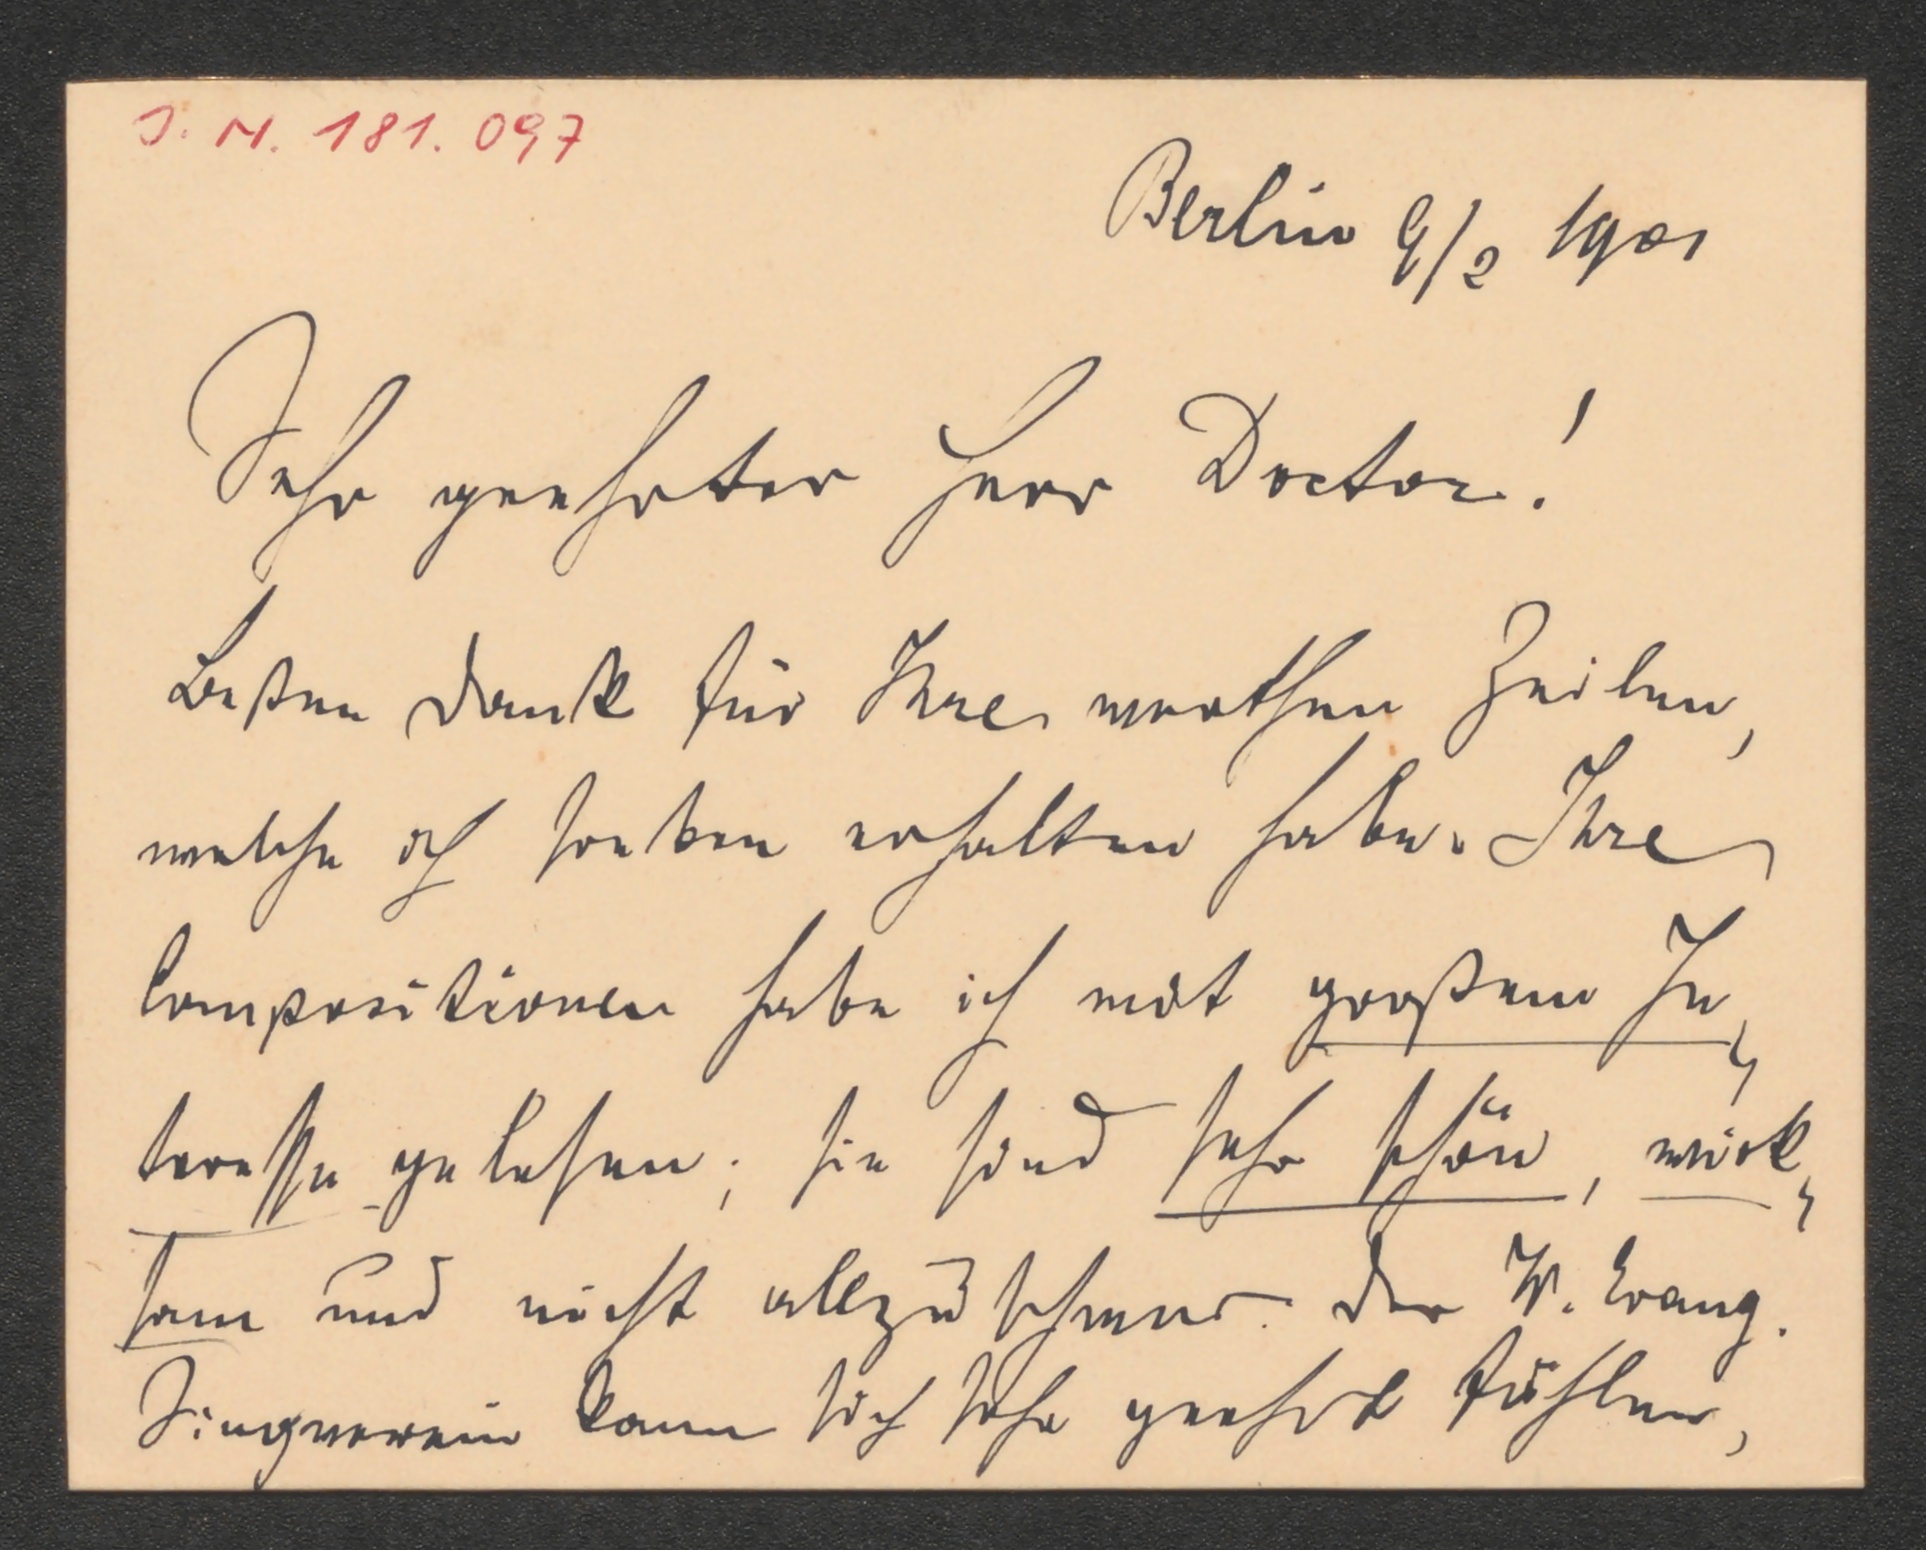 J. N. 181.097
Berlin 9/2 1901
Sehr geehrter Herr Doctor!
Besten Dank für Ihre werthen Zeilen,
welche ich soeben erhalten habe. Ihre
Compositionen habe ich mit großem In-
teresse gelesen; sie sind sehr schön, wirk-
sam und nicht allzu schwer. Der W. Evang.
Singverein kann sich sehr geehrt fühlen,